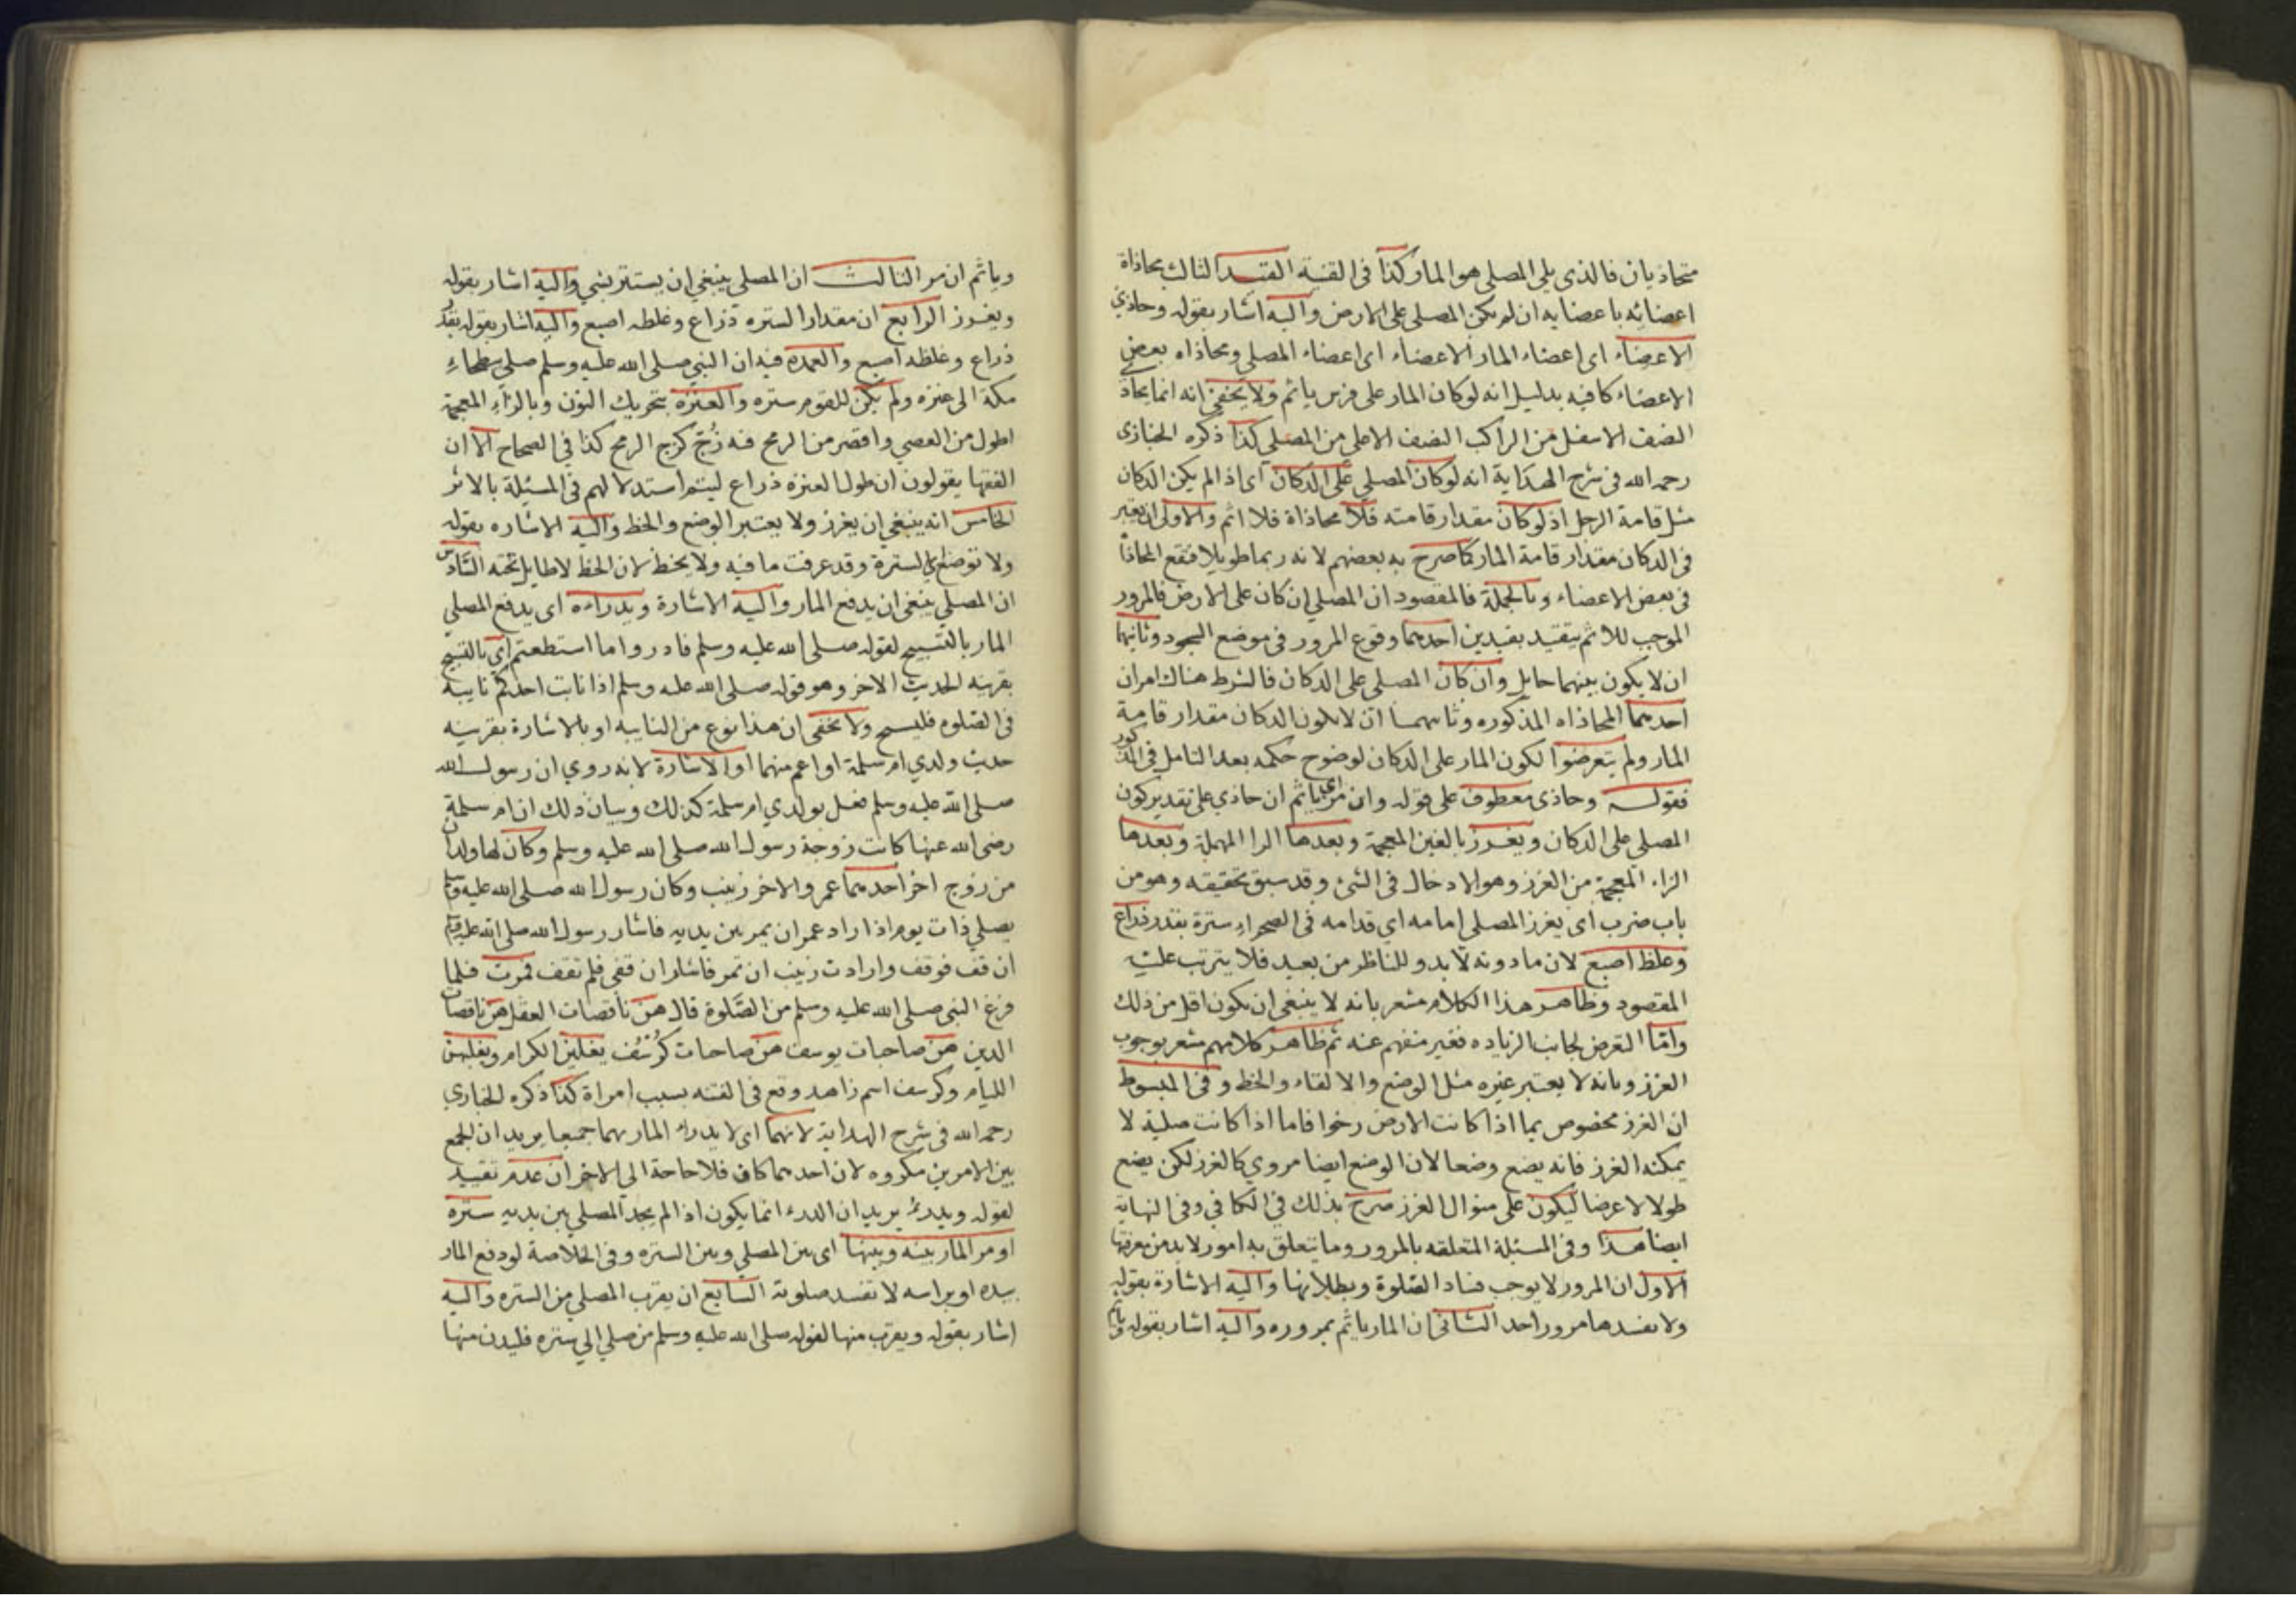 متحاذيان فالذي يلي المصلي هو المار كذا في القنية القيد الثالث محاذاة
اعضائه باعضايه ان لم يكن المصلي على الارض واليه اشار بقوله وحاذي
الاعضاء اي اعضاء المار الاعضاء اي اعضاء المصلي ومحاذاه بعض
الاعضاء كافيه بدليل انه لو كان المار على فرس ياثم ولا يخفى انه انما يحاذ
النصف الاسفل من الراكب النصف الاعلى من المصلي كذا ذكره الخبازى
رحمه الله في شرح الهداية انه لو كان المصلي على الدكان اي اذا لم يكن الدكان
مثل قامة الرجل اذ لو كان مقدار قامته فلا محاذاة فلا اثم والاولى ان يعتبر
في الدكان مقدار قامة المار كما صرح به بعضهم لانه ربما طويلا فتقع المحاذاة
في بعض الاعضاء وبالجملة فالمقصود ان المصلي ان كان على الارض فالمرور
الموجب للاثم يتقيد بقيدين احدهما وقوع المرور في موضع السجود وثانيهما
ان لا يكون بينهما حايل وان كان المصلي على الدكان فالشرط هناك امران
احدهما المحاذاه المذكوره وثانيهما ان لا يكون الدكان مقدار قامة
المار ولم يتعرضوا لكون المار على الدكان لوضوح حكمه بعد التامل في المذكور
فقوله وحاذى معطوف على قوله وان مر اي ياثم ان حاذي على تقدير كون
المصلي على الدكان ويغرز بالغين المعجمة وبعدها الرا المهملة وبعدها
الزاء المعجمة من الغرز وهو الادخال في الشئ وقد سبق تحقيقه وهو من
باب ضرب اى يغرز المصلي امامه اي قدامه في الصحراء سترة بقدر ذراع
وغلظ اصبع لان ما دونه لا يبدو للناظر من بعيد فلا يترتب عليه
المقصود وظاهر هذا الكلام مشعر بانه لا ينبغي ان يكون اقل من ذلك
واما التعرض لجانب الزياده فغير منفهم عنه ثم ظاهر كلامهم مشعر بوجوب
الغرز وبانه لا يعتبر غيره مثل الوضع والالقاء والخط وفي المبسوط
ان الغرز مخصوص بما اذا كانت الارض رخوا فاما اذا كانت صلبة لا
يمكنه الغرز فانه يضع وضعا لان الوضع ايضا مروي كالغرز لكن يضع
طولا لا عرضا ليكون على منوال الغرز صرح بذلك في الكافي وفي النهاية
ايضا هذا وفي المسئلة المتعلقه بالمرور وما يتعلق به امور لا بد من معرفتها
الاول ان المرور لا يوجب فساد الصلوة وبطلانها واليه الاشارة بقوله
ولا يفسدها مرور احد الثاني ان المار ياثم بمروره واليه اشار بقوله وياثم
وياثم ان مر الثالث ان المصلي ينبغي ان يستتر بشي واليه اشار بقوله
ويغرز الرابع ان مقدار الستره ذراع وغلظه اصبع واليه اشار بقوله بقدر
ذراع وغلظه اصبع والعمده فيه ان النبي صلى الله عليه وسلم صلي ببطحاء
مكة الى عنزه ولم يكن للقوم ستره والعنزه بتحريك النون وبالزاء المعجمة
اطول من العصي واقصر من الرمح فيه زج كزج الرمح كذا في الصحاح الا ان
الفقها يقولون ان طول العنزه ذراع ليتم استدلالهم في المسئلة بالاثر
الخامس انه ينبغي ان يغرز ولا يعتبر الوضع والخط واليه الاشاره بقوله
ولا توضع اي السترة وقد عرفت ما فيه ولا يخط لان الخط لا طايل تحته السادس
ان المصلي ينبغي ان يدفع المار واليه الاشارة ويدراءه اى يدفع المصلي
المار بالتسبيح لقوله صلى الله عليه وسلم فادروا ما استطعتم اي بالتسبيح
بقرينه الحديث الاخر وهو قوله صلى الله عليه وسلم اذا نابت احدكم نايبة
في الصلوه فليسبح ولا يخفى ان هذا نوع من النايبه او بالاشارة بقرينه
حديث ولدي ام سلمة او اعم منهما او الاشارة لانه روي ان رسول الله
صلى الله عليه وسلم فعل بولدي ام سلمة كذلك وبيان ذلك ان ام سلمة
رضي الله عنها كانت زوجة رسول الله صلى الله عليه وسلم وكان لها ولدان
من زوج اخر احدهما عمر والاخر زينب وكان رسول الله صلى الله عليه وسلم
يصلي ذات يوم اذا راد عمر ان يمر بين يديه فاشار رسول الله صلى الله عليه وسلم
ان قف فوقف وارادت زينب ان تمر فاشار ان قفي فلم تقف فمرت فلما
فرغ النبي صلى الله عليه وسلم من الصلوة قال هن ناقصات العقل هن ناقصات
الدين هن صاحبات يوسف هن صاحبات كرسف يغلبن الكرام ويغلبهن
الليام وكرسف اسم زاهد وقع في الفتنه بسبب امراة كذا ذكره الخبازي
رحمه الله في شرح الهداية لا بهما اى لا يدراء المار بهما جميعا يريد ان الجمع
بين الامرين مكروه لان احدهما كاف فلا حاجة الي الاخر ان عدم تقييد
لقوله ويدرئ يريد ان الدرء انما يكون اذا لم يجد المصلي بين يديه ستره
او مر المار بينه وبينها اى بين المصلي وبين الستره وفي الخلاصة لو دفع المار
بيده او براسه لا تفسد صلوته السابع ان يقرب المصلي من الستره واليه
اشار بقوله ويقرب منها لقوله صلى الله عليه وسلم من صلي الي ستره فليدن منها